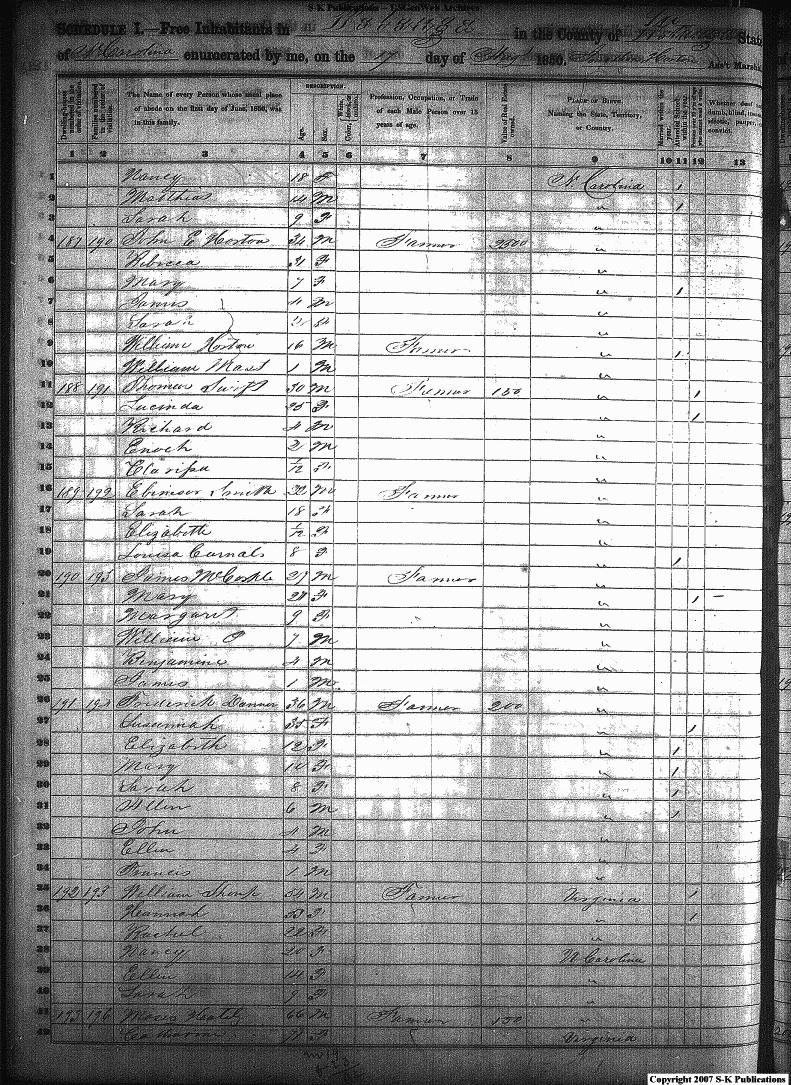 S-K Publications - USGenWeb Archives
SCHEDULE I.—Free Inhabitants in Watauga in the County of State
of N Carolina enumerated by me, on the 17 day of 1850. Horton Ass't Marsh
DESCRIPTION.
Dwelling-houses numbered in the order of visitation. Families numbered in the order of visitation. The Name of every Person whose usual place of abode on the first day of June, 1850, was in this family. Age. Sex. Color, Profession, Occupation, or Trade of each Male Person over 15 years of age. Value of Real Estate owned. PLACE OF BIRTH. Naming the State, Territory, or Country. Married within the year. Attended School within the year. Whether deaf dumb, blind, insane, idiotic, pauper, convict.
1 2 3 4 5 6 7 8 9 10 11 12 13
1 Nancy 18 F N Carolina /
2 Matthias 14 M " /
3 Sarah 9 F "
4 187 190 John E Horton 34 M Farmer 2500 "
5 Rebecca 31 F "
6 Mary 7 F " /
7 James 4 M "
8 Sarah 2 F "
9 William Horton 16 M Farmer " /
10 William Mast 1 M "
11 188 191 Thomas Swift 30 M Farmer 150 " /
12 Lucinda 25 F " /
13 Richard 4 M "
14 Enoch 2 M "
15 Clarissa F "
16 189 192 Ebineser Smith 32 M Farmer "
17 Sarah 18 F "
18 Elizabeth F "
19 Louisa 8 F " /
20 190 193 James 27 M Farmer "
21 Mary 28 F " / –
22 Margaret 9 F "
23 William P 7 M "
24 Benjamine 4 M "
25 James 1 M "
26 191 Frederick 36 M Farmer 200 "
27 Susannah 35 F " /
28 Elizabeth 12 F " /
29 Mary 10 F " /
30 Sarah 8 F " /
31 Allen 6 M " /
32 John 4 M "
33 Ellen 4 F "
34 Francis 1 M "
35 192 William 54 M Farmer Virginia /
36 Hannah 53 F " /
37 Rachel 22 F "
38 Nancy 20 F N Carolina
39 Ellen 14 F "
40 Sarah 9 F "
41 193 196 Moses 66 M Farmer 150 "
42 Catharine F Virginia
Copyright 2007 S-K Publications